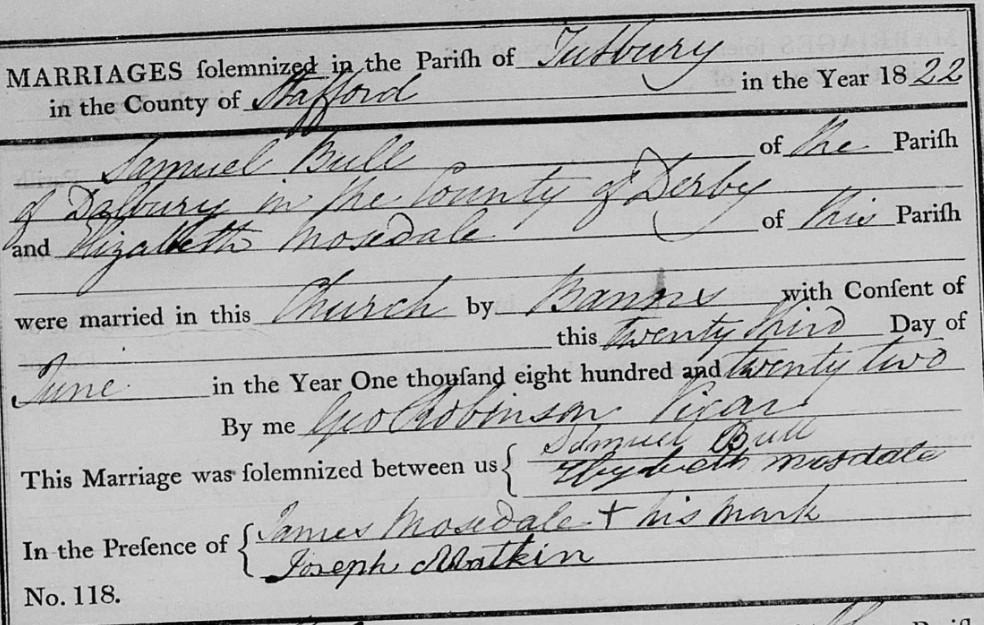 MARRIAGES ſolemnized in the Pariſh of Tutbury
in the County of Stafford in the Year 1822
Samuel Bull of the Pariſh
of Dalbury in the County of Derby
and Elizabeth Mosedale of this Pariſh
were married in this Church by Banns with Conſent of
this twenty third Day of
June in the Year One thouſand eight hundred and twenty two
By me Geo Robinson Vicar
This Marriage was ſolemnized between us { Samuel Bull
Elizabeth mosdale
In the Preſence of { James Mosedale + his Mark
Joseph Watkin
No. 118.